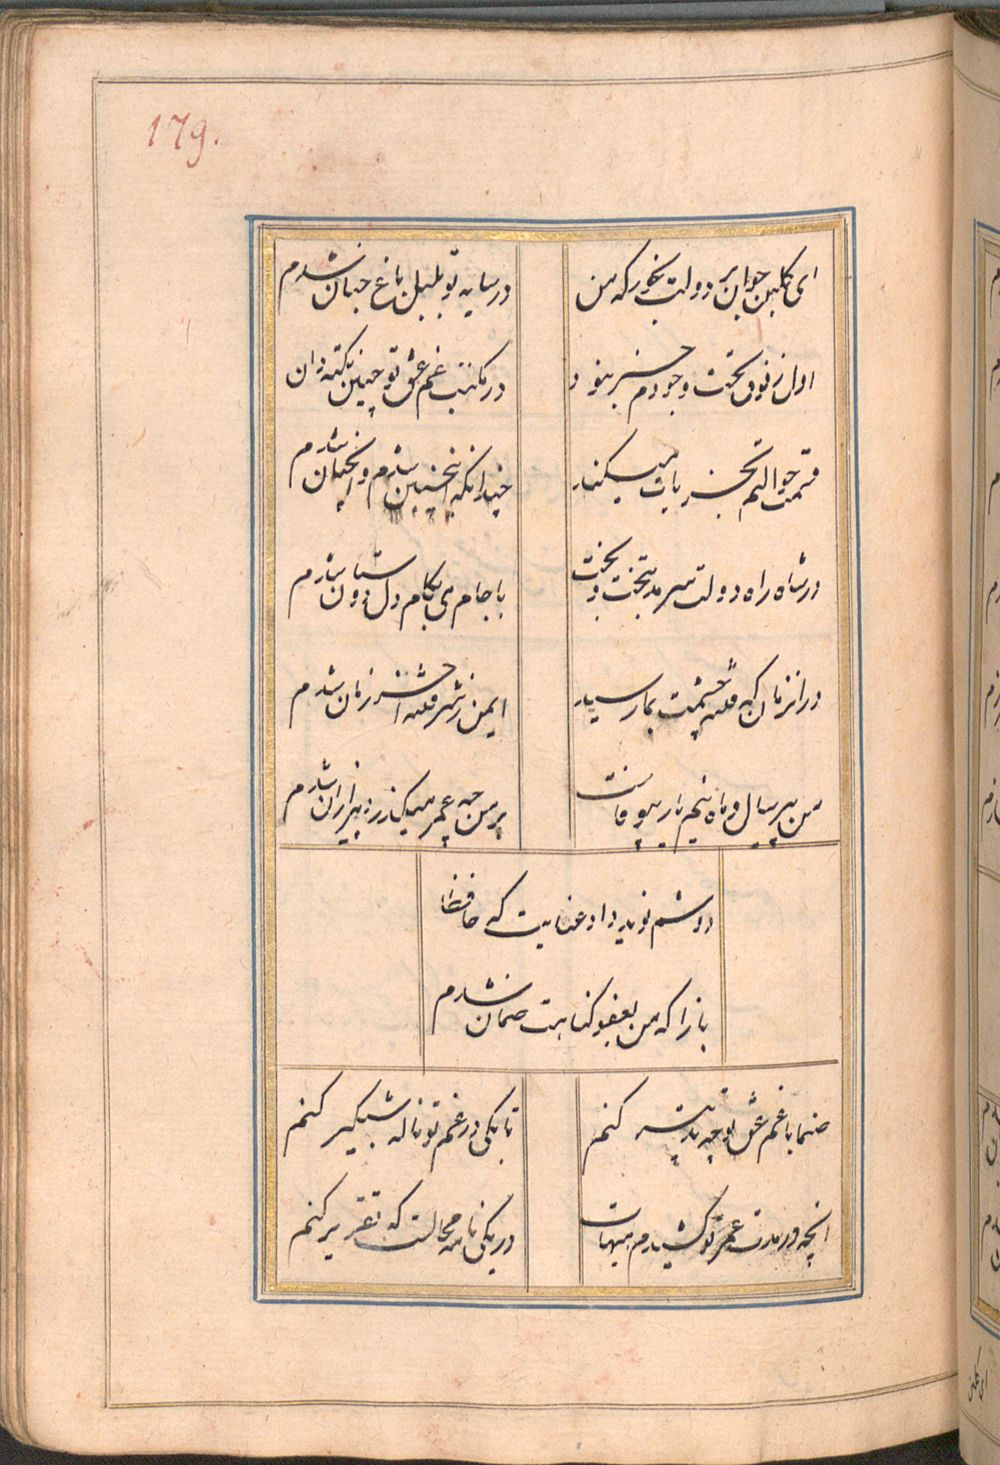 179.
ای گلبن جوان بر دولت بخور که من
در سایه تو بلبل باغ جهان شدم
اول ز فوق تحت وجودم خبر نبود
در مکتب غم عشق تو چنین نکته دان
قسمت حوالتم بخرابات میکند
چندانکه اینچنین شدم و آنچنان شدم
در شاه راه دولت سرمد بتخت و بخت
با جام می بکام دل دوستان شدم
در آنزمان که فتنه چشمت بمن رسید
ایمن ز شر فتنه آخر زمان شدم
من پیر سال و ماه نیم یار بیوفاست
بر من چو عمر میگذرد پیر از آن شدم
دوشم نوید داد عنایت که حافظا
باز آ که من بعفو گناهت ضمان شدم
صنما با غم عشق تو چه تدبیر کنم
تا بکی در غم تو ناله شبگیر کنم
آنچه در مدت عمر تو کشیدم هیهات
در یکی نامه محالست که تقریر کنم